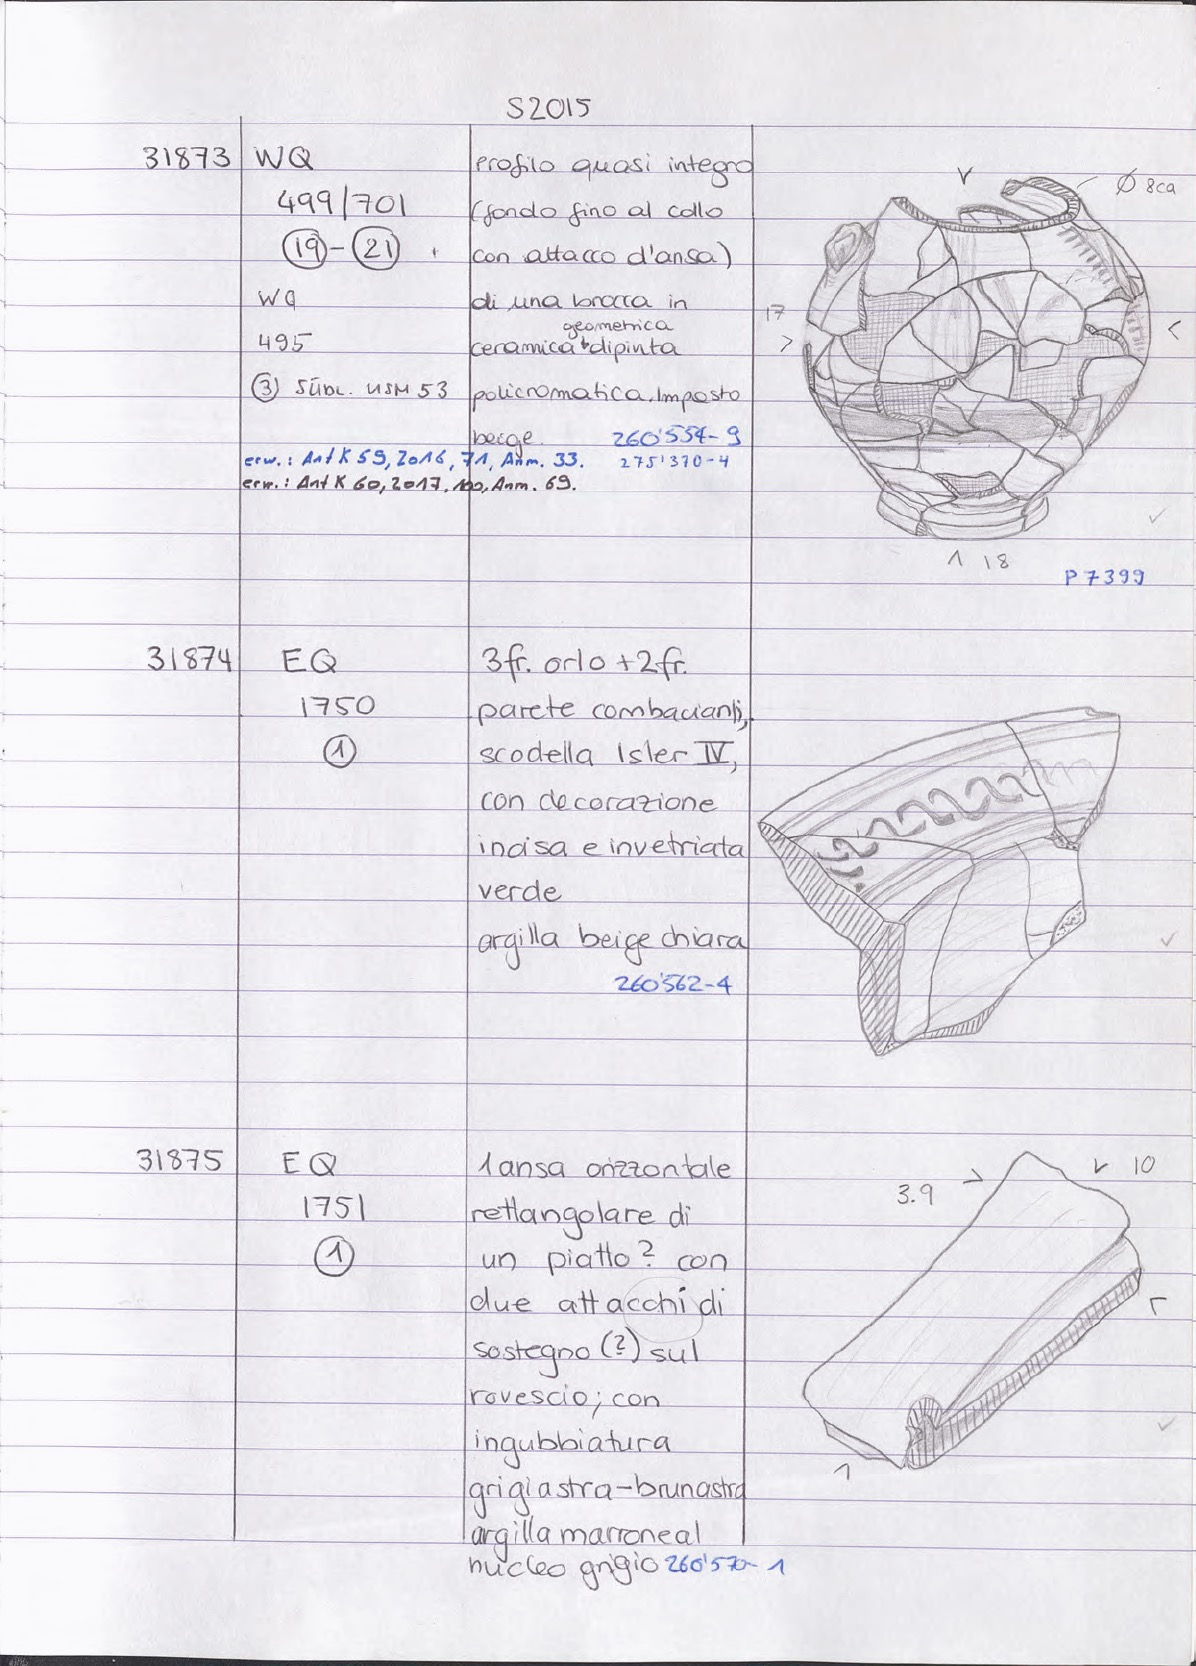 S2015
31873
WQ
499/701
19 - 21
WQ
495
3 SÜDL. USM 53
erw.: AntK 59, 2016, 71, Anm. 33.
erw.: AntK 60, 2017, 100, Anm. 69.
Profilo quasi integro
(fondo fino al collo
con attacco d'ansa)
di una brocca in
geometrica
ceramica dipinta
policromatica. Impasto
beige. 260'554-9
275'370-4
Ø 8ca
17
18
P 7399
31874
EQ
1750
1
3 fr. orlo + 2 fr.
parete combacianti,
scodella Isler IV,
con decorazione
incisa e invetriata
verde
argilla beige chiara
260'562-4
31875
EQ
1751
1
1 ansa orizzontale
rettangolare di
un piatto? con
due attacchi di
sostegno (?) sul
rovescio; con
ingubbiatura
grigiastra-brunastra
argilla marrone al
nucleo grigio 260'570-1
3.9
10